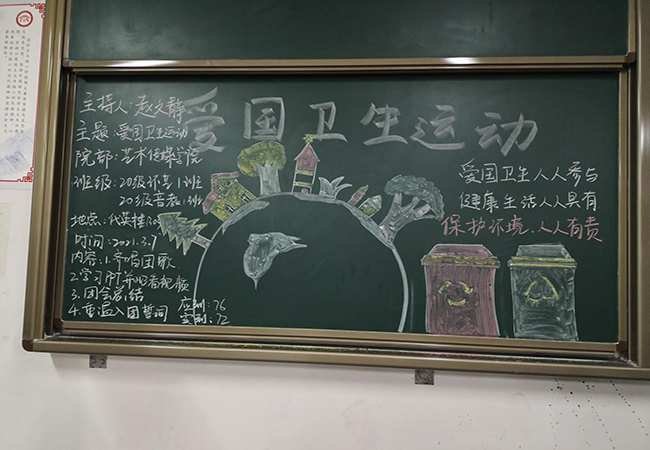 爱国卫生运动
主持人:赵文静
主题:爱国卫生运动
院部:艺术传媒学院
班级:20级评芸1班
20级音表1班
地点:代英楼
时间:2021.3.7
内容:1.齐唱团歌
2.学习PPT并观看视频
3.团会总结
4.重温入团誓词
应到:76
实到:72
爱国卫生人人参与
健康生活人人具有
保护环境.人人有责